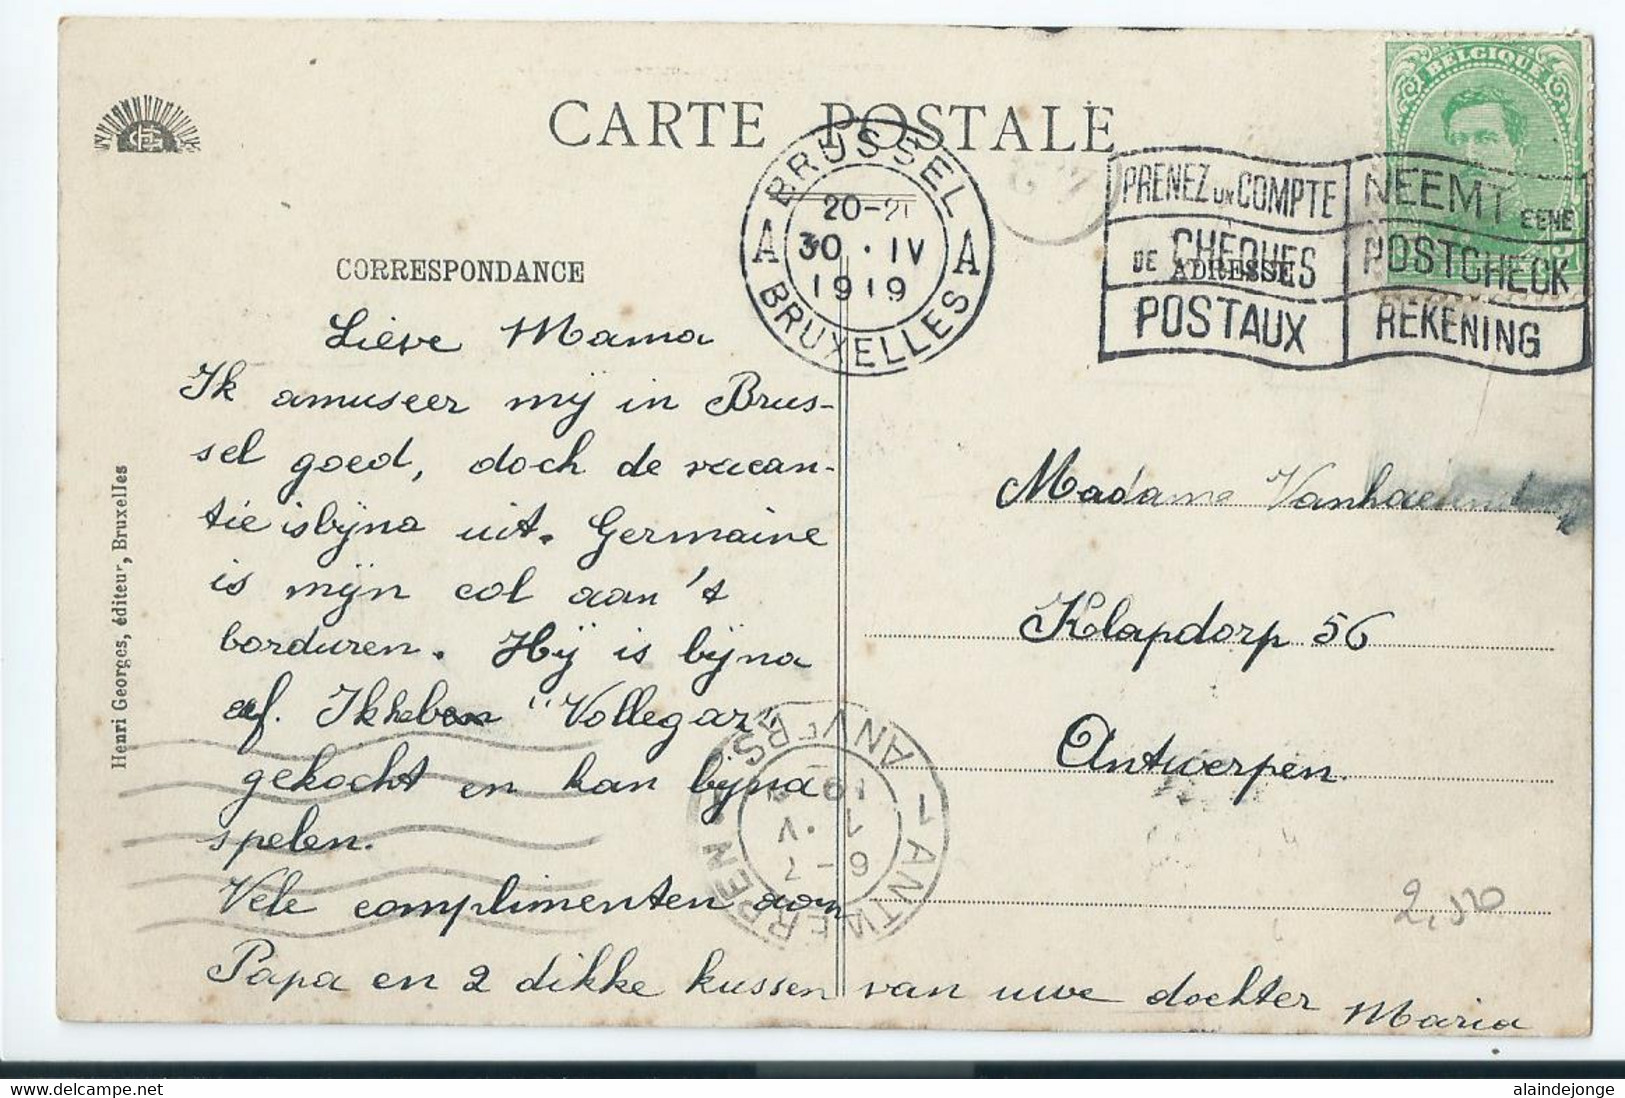 CARTE POSTALE
BELGIQUE
BRUSSEL
20-21
A 30 · IV A
1919
BRUXELLES
PRENEZ UN COMPTE
DE CHEQUES
POSTAUX
NEEMT EENE
POSTCHECK
REKENING
CORRESPONDANCE
ADRESSE
Liève Mama
Ik amuseer mij in Brus-
sel goed, doch de vacan-
tie is bijna uit. Germaine
is mijn col aan 't
borduren. Hij is bijna
af. Ik heb "Vollegar"
gekocht en kan bijna
spelen.
Vele complimenten aan
Papa en 2 dikke kussen van uwe dochter Maria
Madame
Klapdorp 56
Antwerpen.
ANTWERPEN
6-7
1 · V
19
ANVERS
Henri Georges, éditeur, Bruxelles
alaindejonge